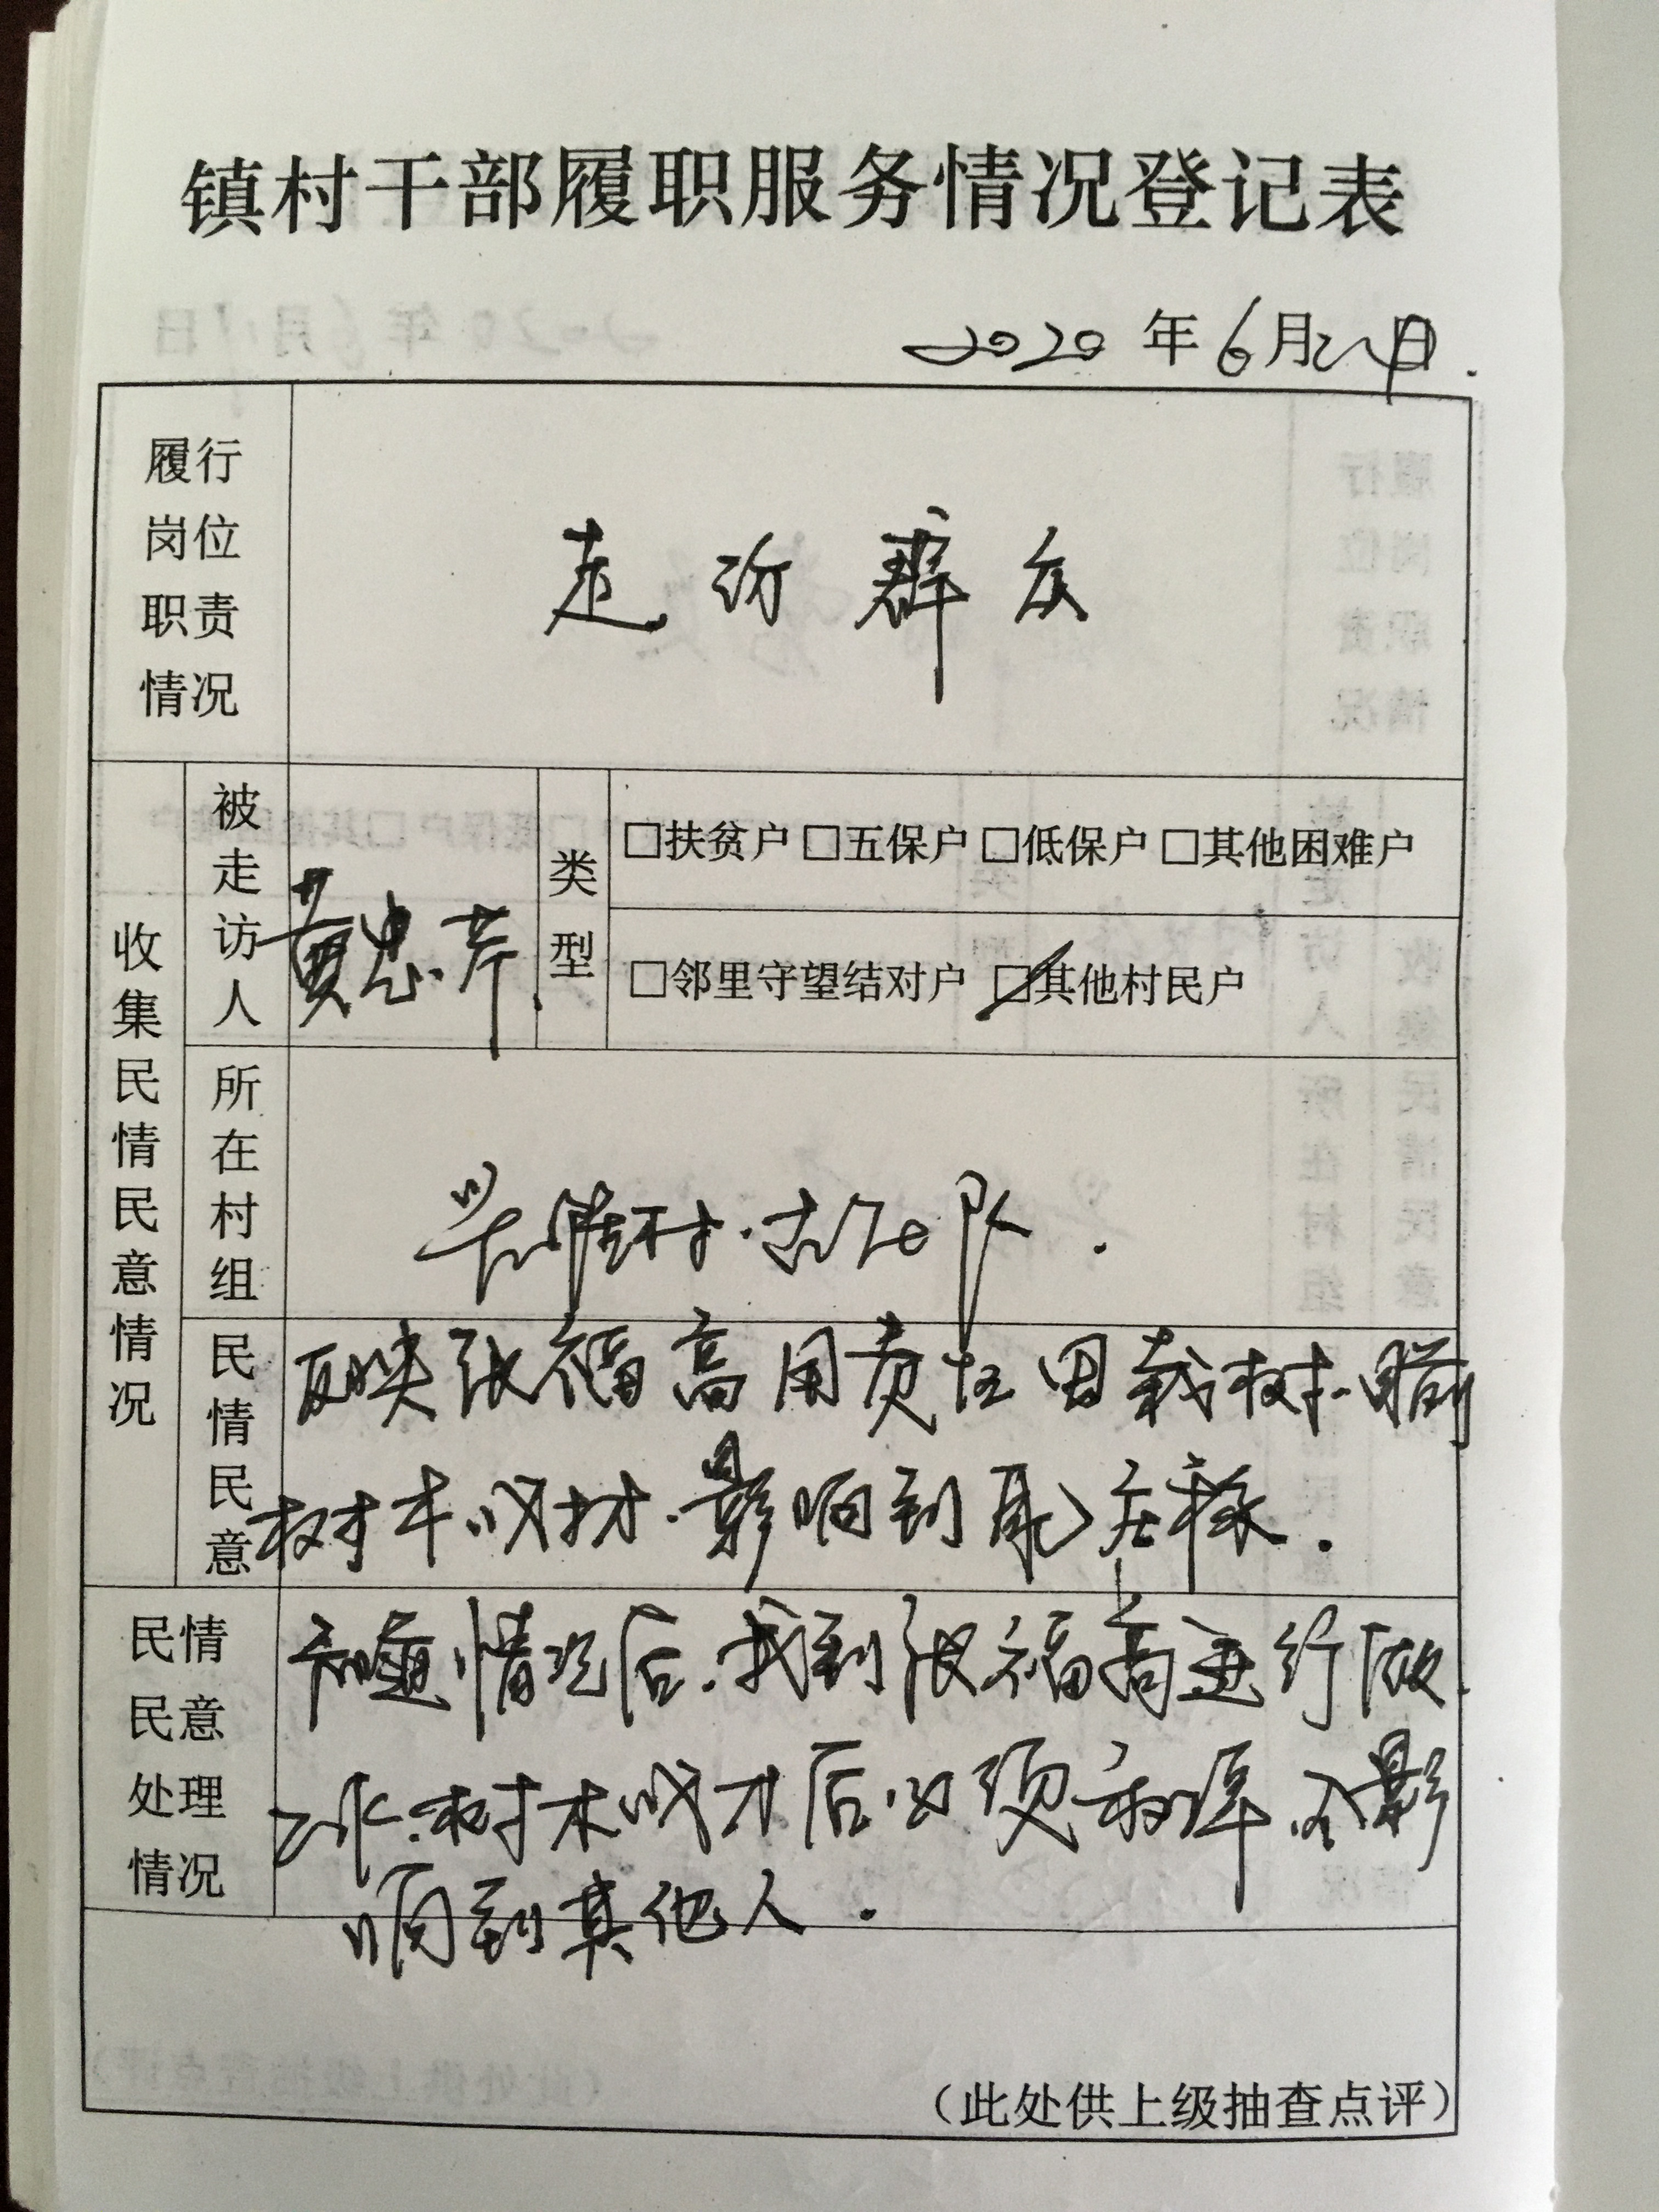 镇村干部履职服务情况登记表
2020年6月 日
履行岗位职责情况
走访群众
收集民情民意情况
被走访人
黄忠芹
类型
□扶贫户 □五保户 □低保户 □其他困难户
□邻里守望结对户 ☑其他村民户
所在村组
村 队
民情民意
反映张福高用责任田栽树.
树木成材.影响到 庄稼.
民情民意处理情况
知道情况后.我到张福高进行做
工作.树木成才后必须 不影
响到其他人.
（此处供上级抽查点评）